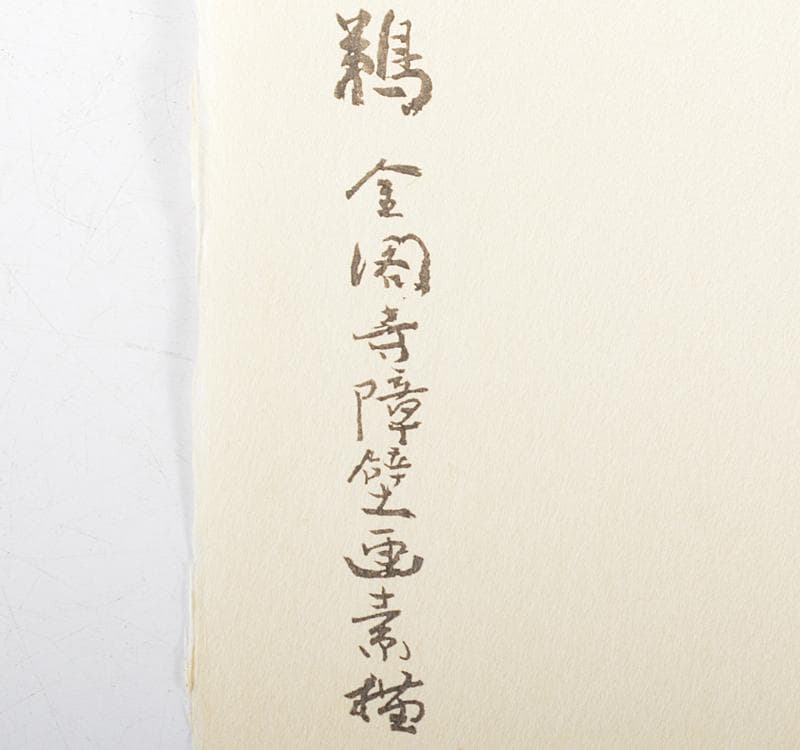 鵜 金閣寺障壁画素描